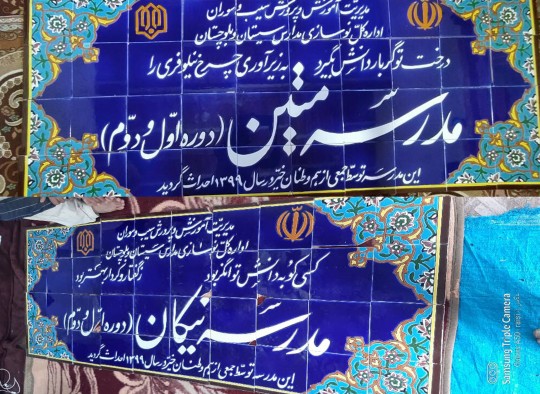 مدیریت آموزش و پرورش سیب و سوران
اداره کل نوسازی مدارس سیستان و بلوچستان
درخت تو گر بار دانش بگیرد به زیر آوری چرخ نیلوفری را
مدرسه متین (دوره اول و دوم)
این مدرسه توسط جمعی از هم وطنان خیّر در سال ۱۳۹۹ احداث گردید
مدیریت آموزش و پرورش سیب و سوران
اداره کل نوسازی مدارس سیستان و بلوچستان
کسی کو به دانش توانگر بود ز گفتار و کردار بهتر بود
مدرسه نیکان (دوره اول و دوم)
این مدرسه توسط جمعی از هم وطنان خیّر در سال ۱۳۹۹ احداث گردید
Samsung Triple Camera